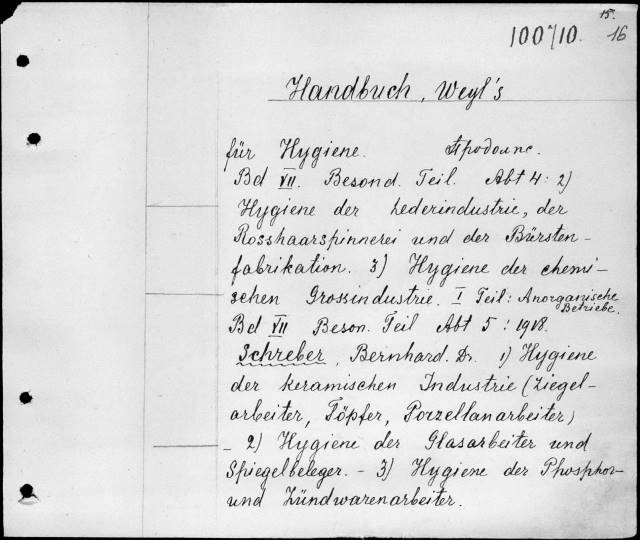 15.
100710. 16
Handbuch, Weyl's
für Hygiene.
Bd VII. Besond. Teil. Abt 4: 2)
Hygiene der Lederindustrie, der
Rosshaarspinnerei und der Bürsten-
fabrikation. 3) Hygiene der chemi-
schen Grossindustrie. I Teil: Anorganische
Betriebe.
Bd VII Beson. Teil Abt 5: 1918.
Schreber, Bernhard. Dr. 1) Hygiene
der keramischen Industrie (Ziegel-
arbeiter, Töpfer, Porzellanarbeiter)
- 2) Hygiene der Glasarbeiter und
Spiegelbeleger. - 3) Hygiene der Phosphor-
und Zündwarenarbeiter.